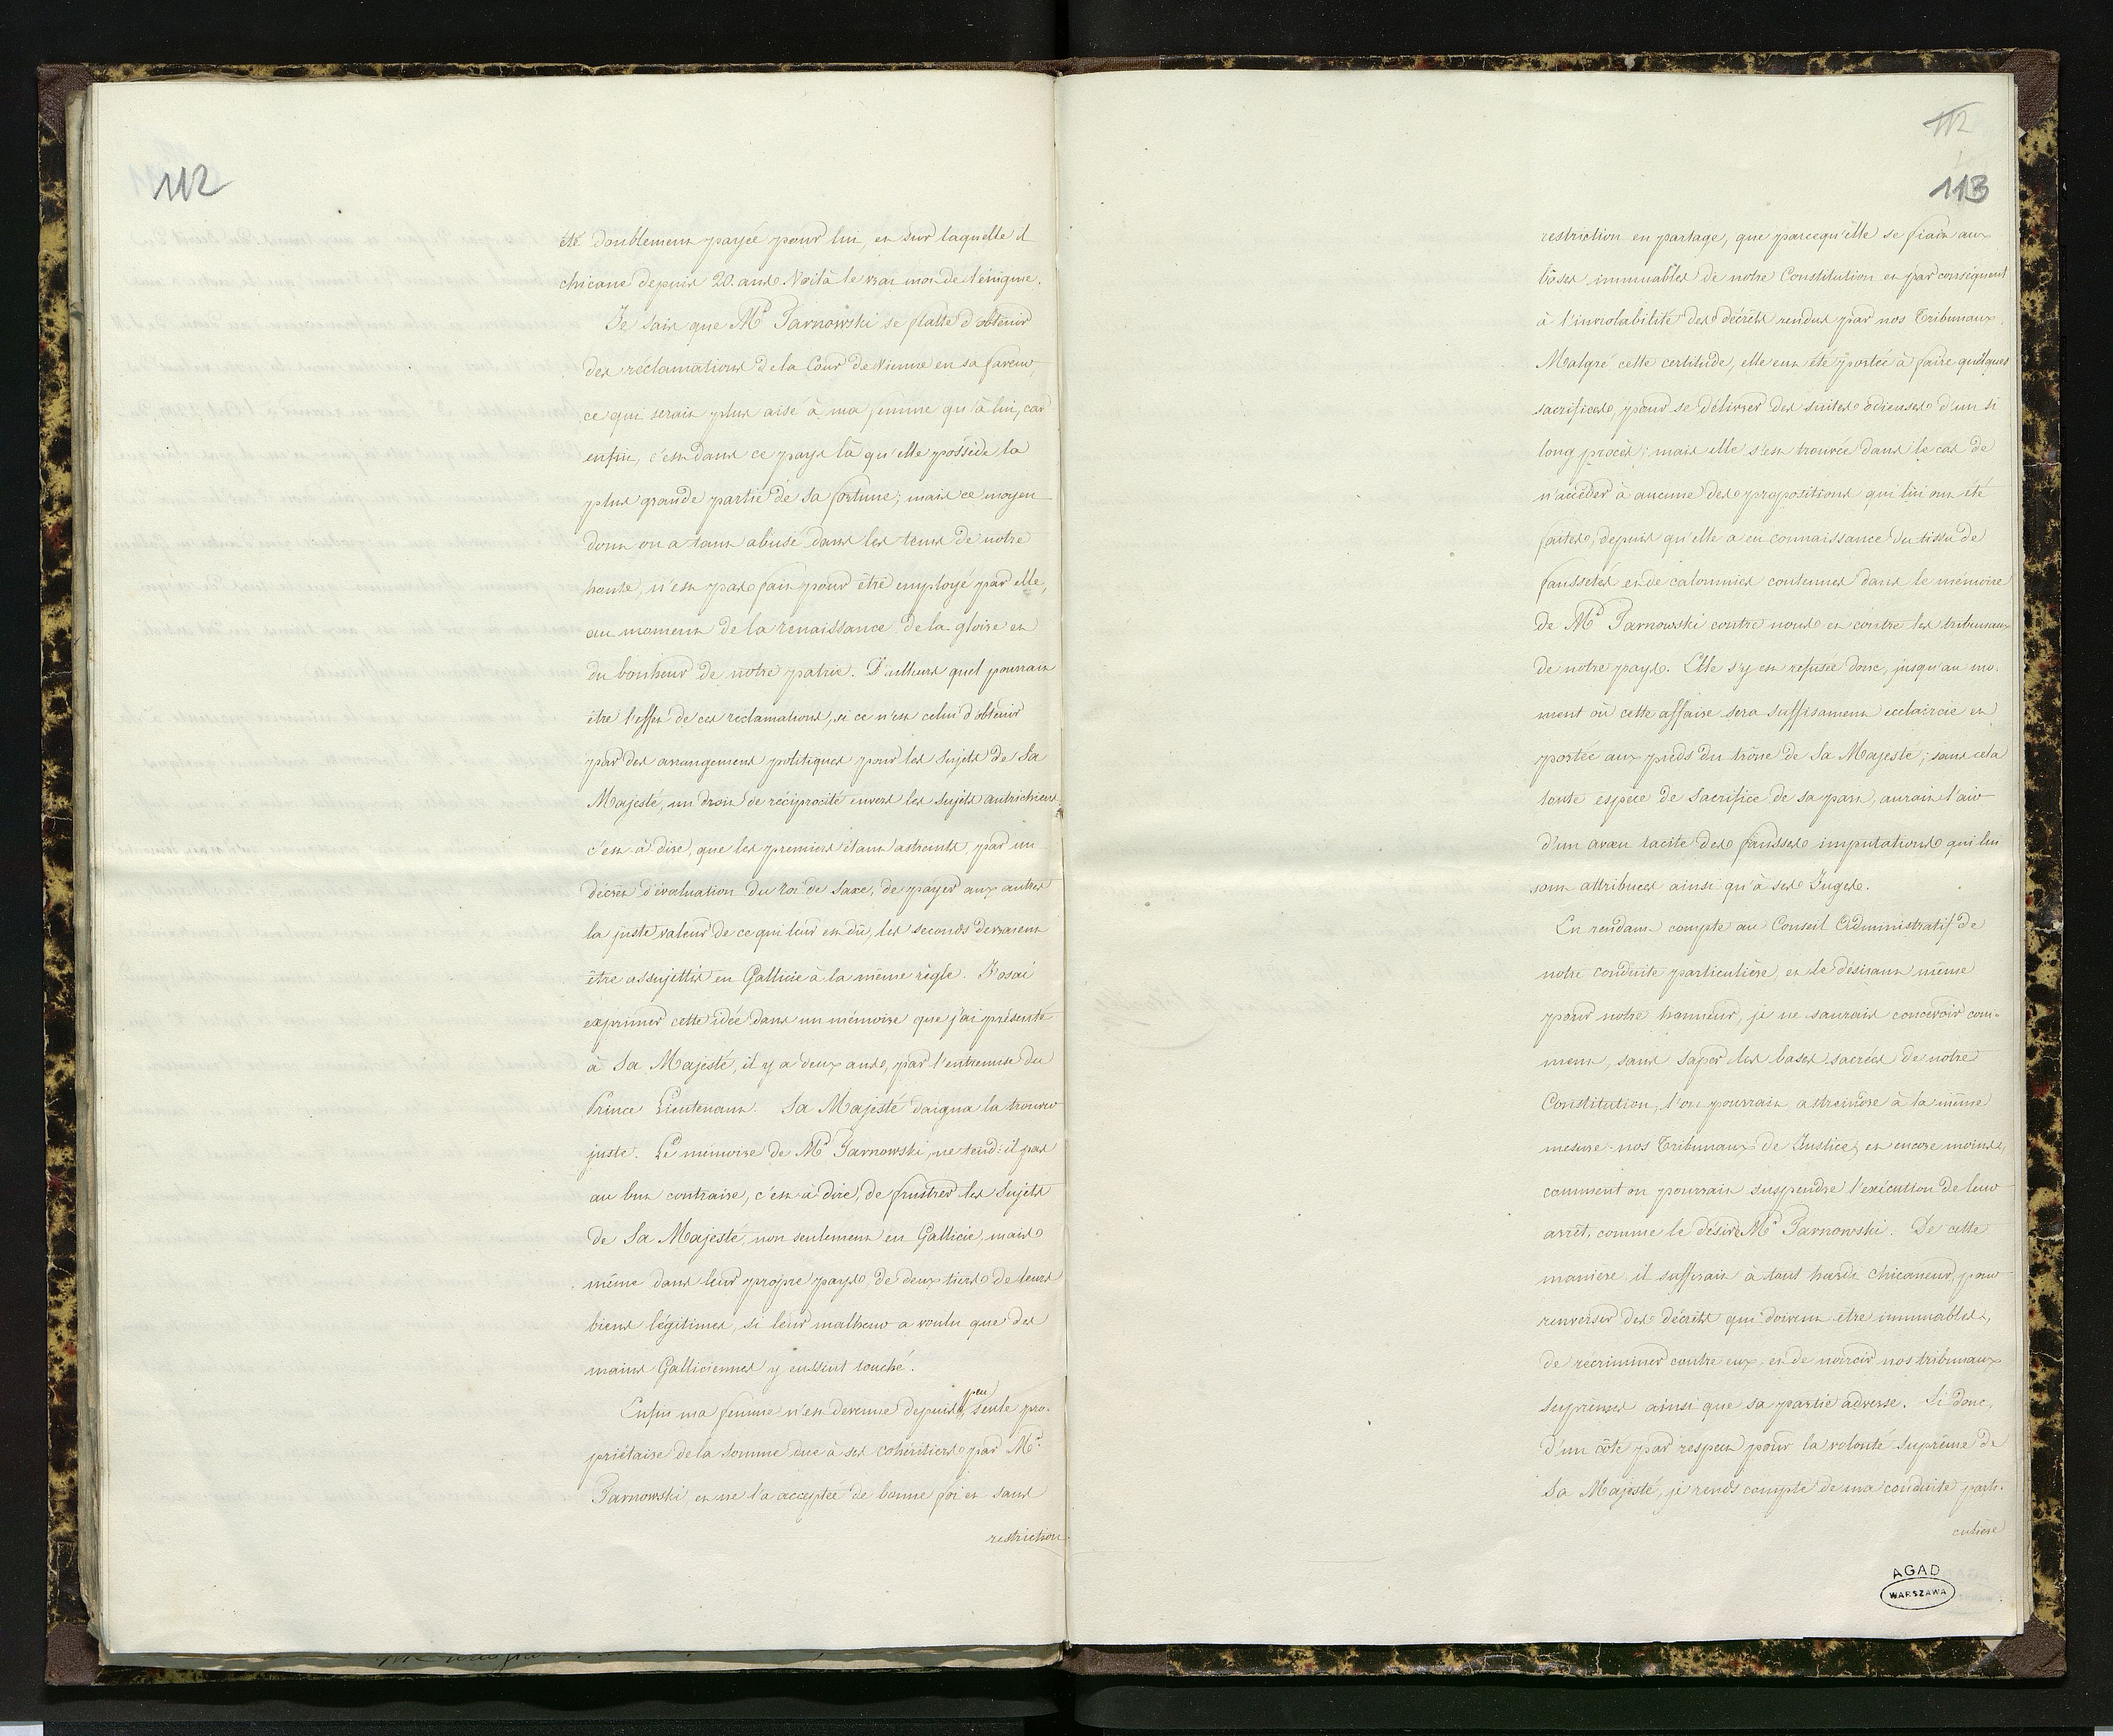 112
été doublement payée pour lui, et sur laquelle il
chicane depuis 20. ans. Voilà le vrai mot de l'énigme.
Je sais que Mr Tarnowski se flatte d'obtenir
des réclamations de la Cour de Vienne en sa faveur,
ce qui serait plus aisé à ma femme qu'à lui, car
enfin, c'est dans ce pays là qu'elle possède la
plus grande partie de sa fortune; mais ce moyen
dont on a tant abusé dans les tems de notre
honte, n'est pas fait pour être employé par elle,
au moment de la renaissance de la gloire et
du bonheur de notre patrie. D'ailleurs quel pourrait
être l'effet de ces reclamations, si ce n'est celui d'obtenir
par des arrangemens politiques pour les Sujets de Sa
Majesté, un droit de réciprocité envers les Sujets autrichiens,
c'est à dire, que les premiers étant astreints par un
décret d'évaluation du roi de Saxe, de payer aux autres
la juste valeur de ce qui leur est dû, les seconds devraient
être assujettis en Gallicie à la même règle. J'osai
exprimer cette idée dans un mémoire que j'ai présenté
à Sa Majesté, il y a deux ans, par l'entremise du
Prince Lieutenant. Sa Majesté daigna la trouver
juste. Le mémoire de Mr Tarnowski, ne tend-il pas
au but contraire, c'est à dire, de frustrer les Sujets
de Sa Majesté, non seulement en Gallicie, mais
même dans leur propre pays, de deux tiers de leurs
biens légitimes, si leur malheur a voulu que des
mains Galliciennes y eussent touché.
Enfin ma femme n'est devenue depuis peu seule pro-
priétaire de la somme due à ses cohéritiers par Mr
Tarnowski, et ne l'a acceptée de bonne foi et sans
restriction
112
113
restriction en partage, que parcequ'elle se fiait aux
bases immuables de notre Constitution et par conséquent
à l'inviolabilité des décrets rendus par nos Tribunaux.
Malgré cette certitude, elle eut été portée à faire quelques
sacrifices, pour se délivrer des suites odieuses d'un si
long procès; mais elle s'est trouvée dans le cas de
n'accéder à aucune des propositions qui lui ont été
faites, depuis qu'elle a eu connaissance du tissu de
faussetés et de calomnies contenues dans le mémoire
de Mr Tarnowski contre nous et contre les tribunaux
de notre pays. Elle s'y est refusée donc, jusqu'au mo-
ment où cette affaire sera suffisament eclaircie et
portée aux pieds du trône de Sa Majesté; sans cela
toute espèce de Sacrifice de sa part, aurait l'air
d'un aveu tacite des fausses imputations qui lui
sont attribuées ainsi qu'à ses Juges.
En rendant compte au Conseil Administratif de
notre conduite particulière, et le désirant même
pour notre honneur, je ne saurais concevoir com-
ment, sans saper les bases sacrées de notre
Constitution, l'on pourrait astreindre à la même
mesure nos Tribunaux de Justice, et encore moins,
comment on pourrait suspendre l'exécution de leur
arrêt, comme le désire Mr Tarnowski. De cette
maniere il suffirait à tout hardi Chicaneur, pour
renverser des décrets qui doivent être immuables,
de récriminer contre eux, et de noircir nos tribunaux
suprêmes ainsi que sa partie adverse. Si donc,
d'un côté par respect pour la volonté Suprême de
Sa Majesté, je rends compte de ma conduite parti-
culière
AGAD
WARSZAWA